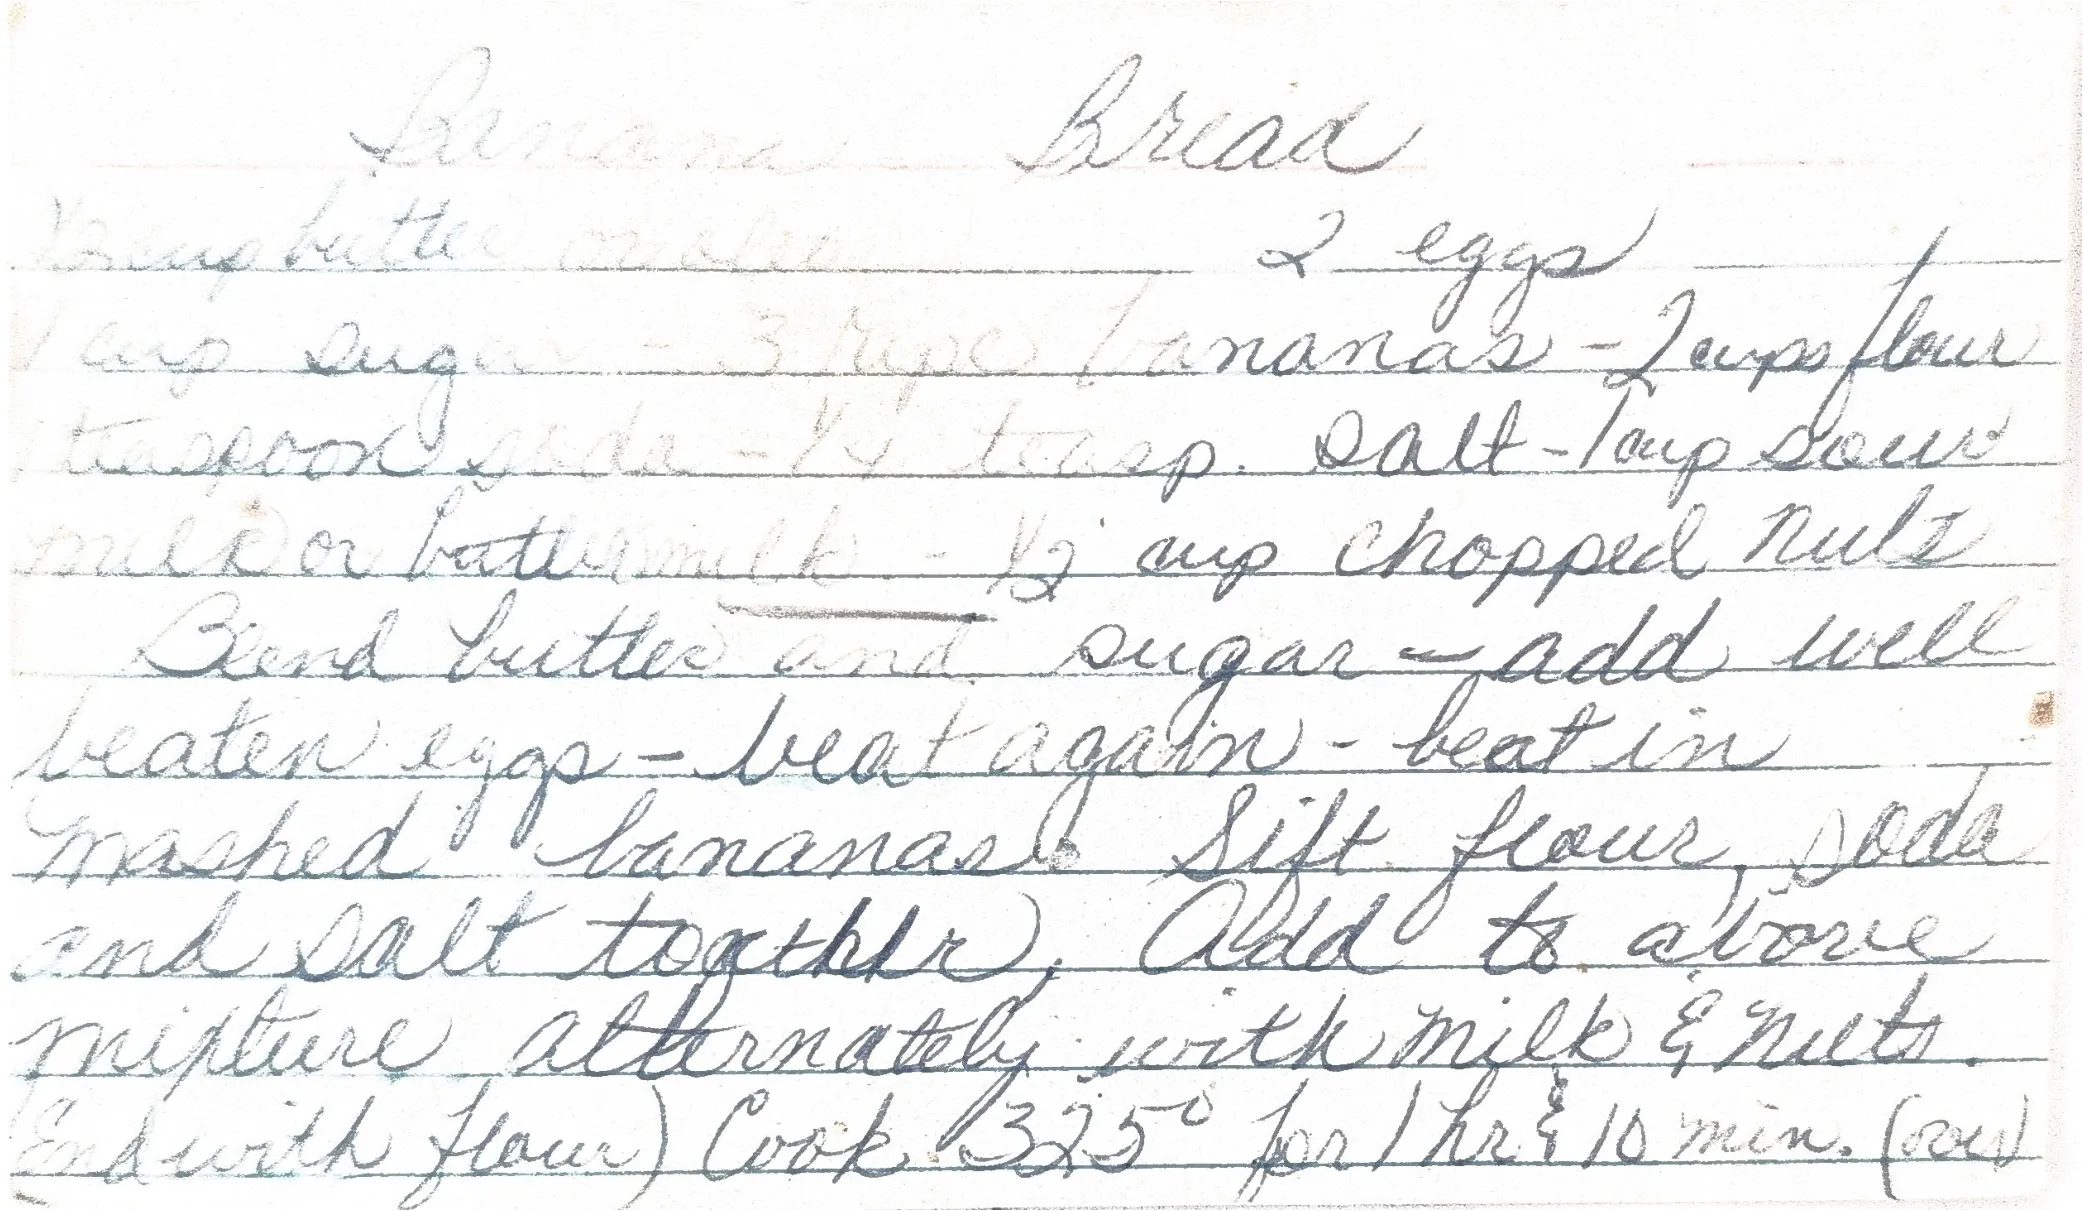 Banana Bread
1/2 cup butter or oleo 2 eggs
1 cup sugar - 3 ripe bananas - 2 cups flour
1 teaspoon soda - 1/4 teasp. salt - 1 cup sour
milk or buttermilk - 1/2 cup chopped nuts
Blend butter and sugar - add well
beaten eggs - beat again - beat in
mashed bananas. Sift flour, soda
and salt together. Add to above
mixture alternately with milk & nuts.
(End with flour) Cook 325° for 1 hr & 10 min. (over)